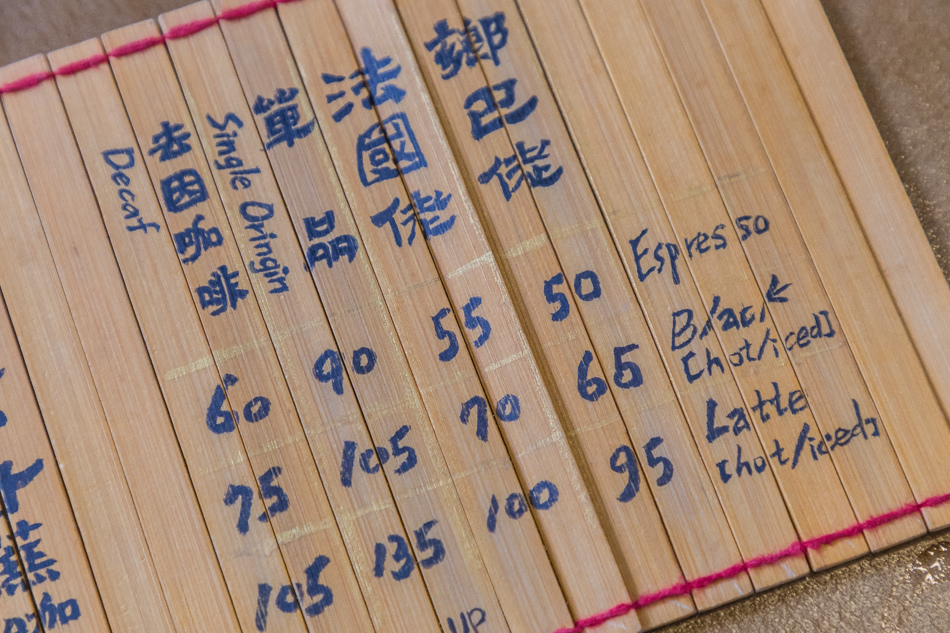 Espresso
Black
[hot/iced]
Latte
[hot/iced]
鄉巴佬
50
65
95
法國佬
55
70
100
單品
Single Oringin
90
105
135
去因咖啡
Decaf
60
75
105
UP
蕉
咖